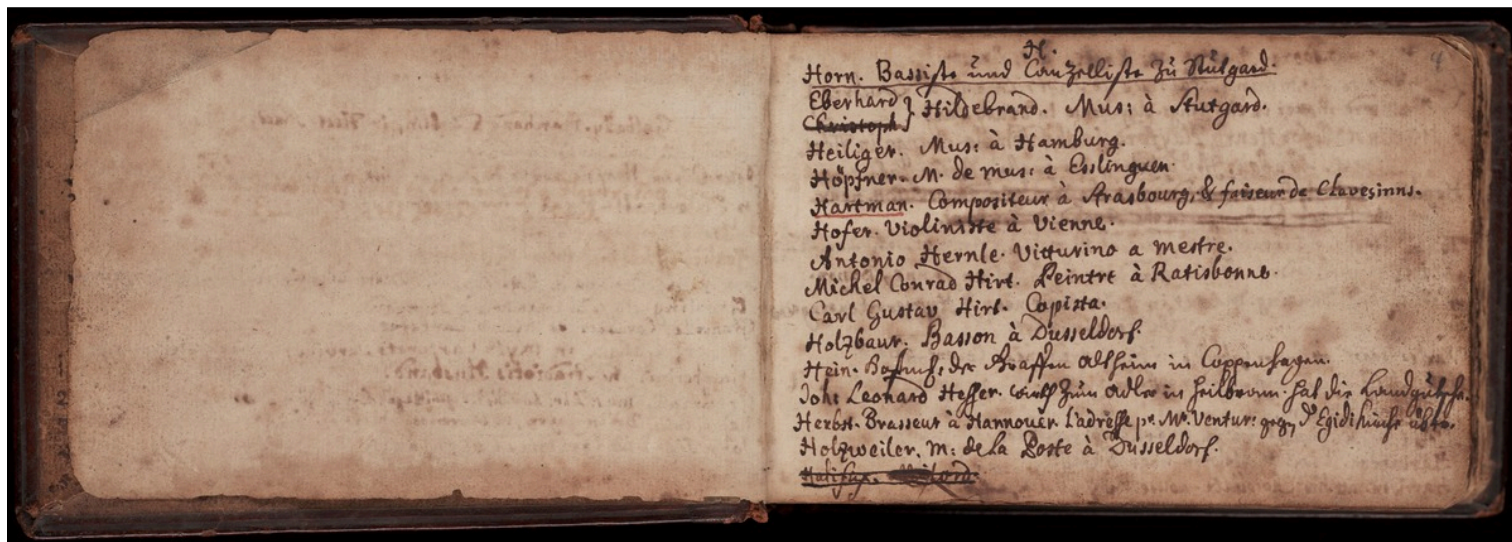 H.
4
Horn. Bassiste und Canzelliste zu Stutgard.
Eberhard } Hildebrand. Mus: à Stutgard.
Christoph
Heiliger. Mus: à Hamburg.
Höpfner. M. de mus: à Esslinguen.
Hartman. Compositeur à Strasbourg, & faiseur de Claveçinns.
Hofer. Violiniste à Vienne.
Antonio Hernle. Vitturino a mestre.
Michel Conrad Hirt. Peintre à Ratisbonne.
Carl Gustav Hirt. Copista.
Holzbaur. Basson à Dusseldorf.
Hein. der Graffen altheim in Coppenhagen.
Joh: Leonard Hesser. wirth zum adler in Heilbronn. hat die Landgutsche.
Herbst. Brasseur à Hannover. L'adresse pr. Mr. Ventur: gegen d' Egidi Kirche über.
Holzweiler. m: de la Poste à Dusseldorf.
Halifax. Milord.